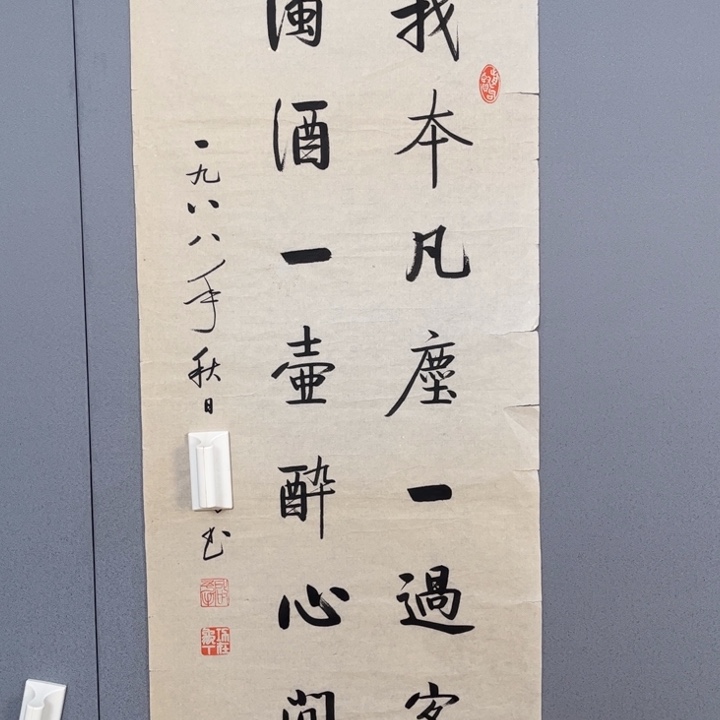 我本凡塵一過客
濁酒一壷醉心
一九八八年秋日
书